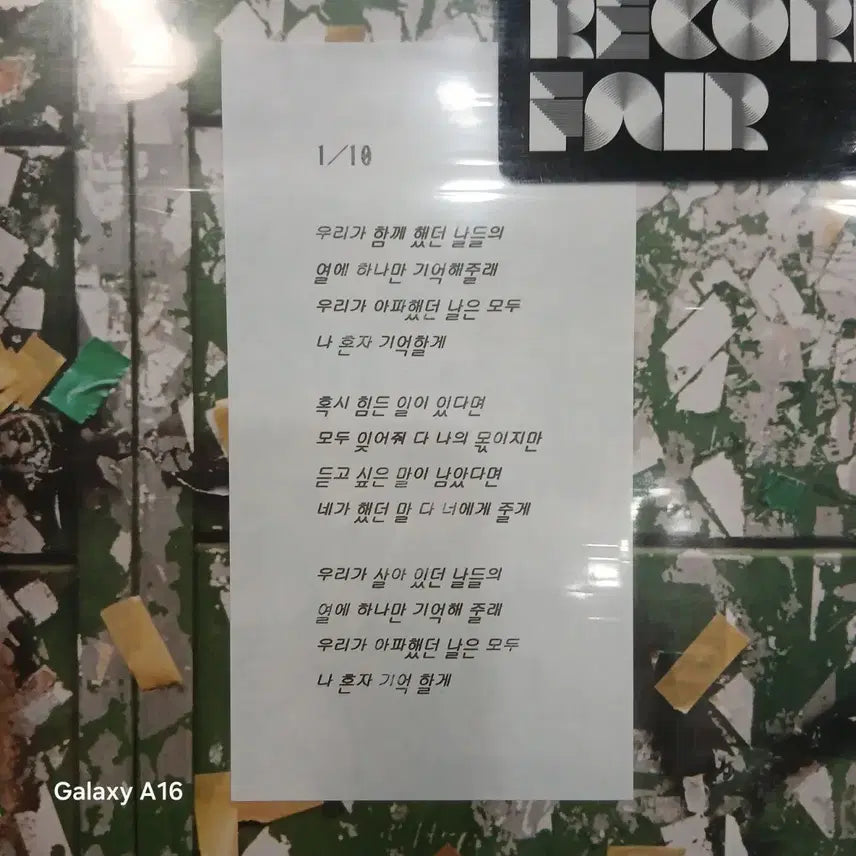 RECOR
FAIR
1/10
우리가 함께 했던 날들의
열에 하나만 기억해줄래
우리가 아파했던 날은 모두
나 혼자 기억할게
혹시 힘든 일이 있다면
모두 잊어줘 다 나의 몫이지만
듣고 싶은 말이 남았다면
네가 했던 말 다 너에게 줄게
우리가 살아 있던 날들의
열에 하나만 기억해 줄래
우리가 아파했던 날은 모두
나 혼자 기억 할게
Galaxy A16